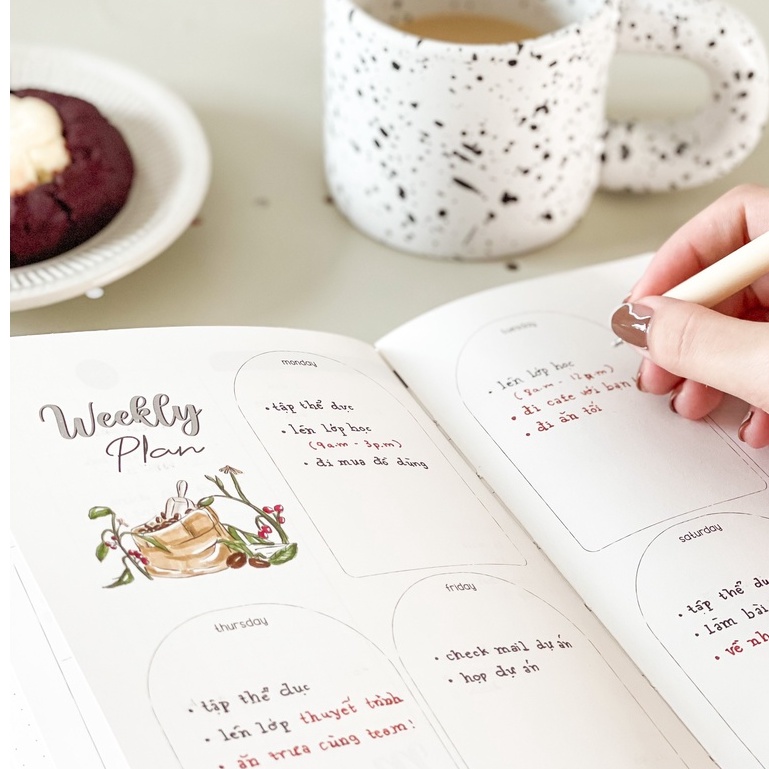 Weekly
Plan
monday
• tập thể dục
• lên lớp học
(9a.m - 3p.m)
• đi mua đồ dùng
tuesday
• lên lớp học
(8a.m - 12p.m)
• đi cafe với bạn
• đi ăn tối
thursday
• tập thể dục
• lên lớp thuyết trình
• ăn trưa cùng team!
friday
• check mail dự án
• họp dự án
saturday
• tập thể
• làm bài
• về